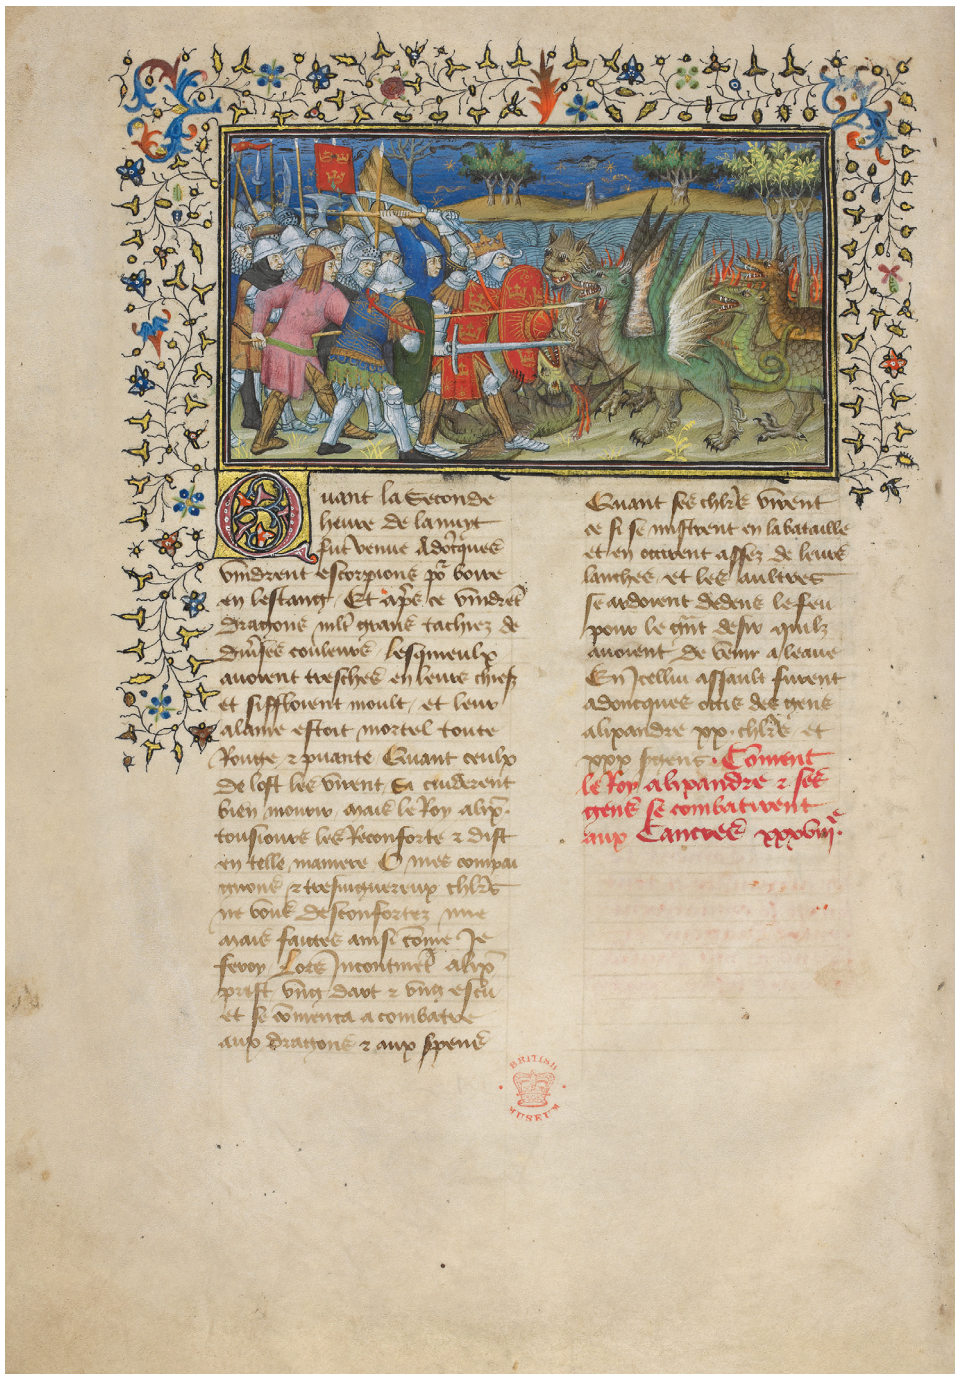 Quant la Seconde
heure de la nuyt
fut venue Adōcques
vindrent escorpions po^r boire
en lestang / Et ap̄s ce vindrēt
dragons mlt grans tachiez de
div̄ses couleurs / lesquieulx
avoient cresches en leurs chiefz
et siffloient moult / et leur
alaine estoit mortel toute
Rouge ⁊ puante Quant ceulx
de lost les virent Si cuiderent
bien mourir mais le Roy alix̄.
tousiours les Reconforte ⁊ dist
en telle maniere O mes compai
gnons ⁊ chl̄rs
ne vous desconfortez mie
mais faictes ainsi cōme Je
feray / Lors Incontinēt alix̄
prist vng dart ⁊ vng escu
et se cōmenca a combatre
aux dragons ⁊ aux s̄pens
Quant ses chl̄rs virent
ce si se mistrent en la bataille
et en occirent assez de leurs
lanches et les aultres
se ardoient dedens le feu
pour le gn̄t desir quilz
avoient de venir a leaue
En Icellui assault furent
adoncques occis des gens
alixandre xx. chl̄rs et
xxx s̄gens . Cōment
le Roy alixandre ⁊ ses
gens se combatirent
aux Cancres xxxviii^e.
BRITISH
MUSEUM